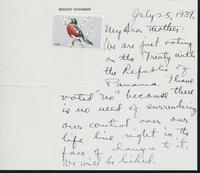 SENATE CHAMBER
July 25, 1939.
My dear Mother:
We are just voting
on the Treaty with
the Republic of
Panama. I have
voted "no" because there
is no need of surrendering
our control over our
life line right in the
face of danger to it.
We will be licked.